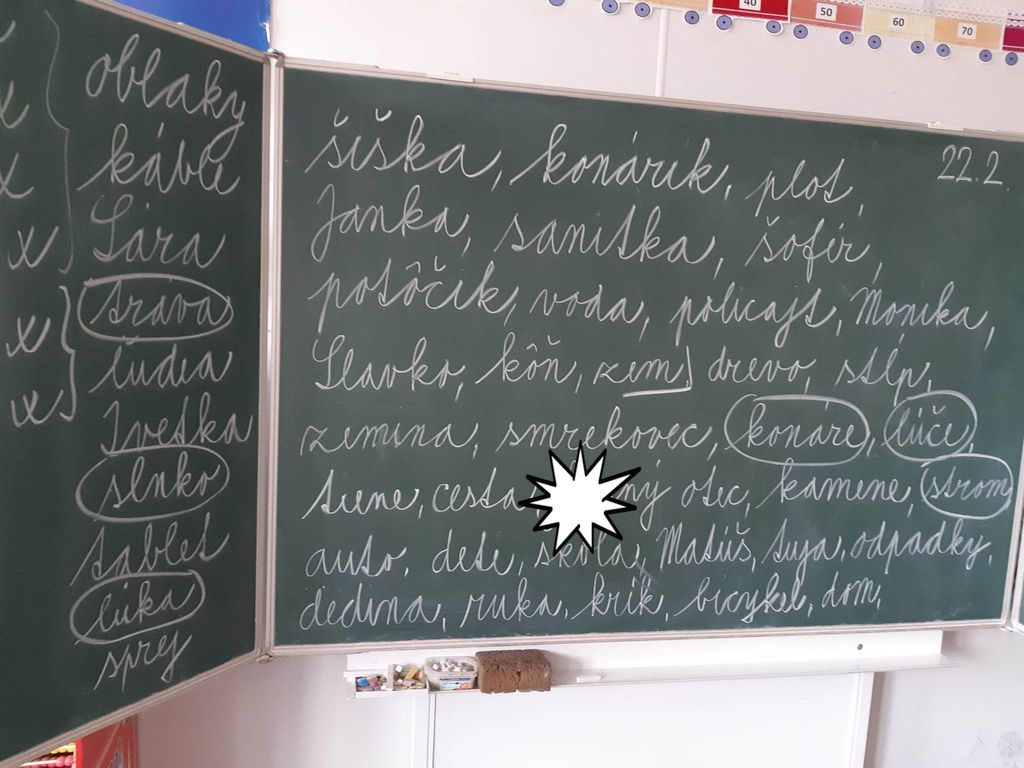 40 50 60 70
x oblaky
x káble
x Sára
x tráva
x ľudia
Ivetka
slnko
tablet
lúka
sprej
22.2.
šiška, konárik, plot,
Janka, sanitka, šofér,
potôčik, voda, policajt, Monika,
Slavko, kôň, zem, drevo, stĺp,
zemina, smrekovec, konáre, lúče,
tiene, cesta otec, kamene, strom
auto, dete, škola, Matúš, tuja, odpadky,
dedina, ruka, krík, bicykel, dom,